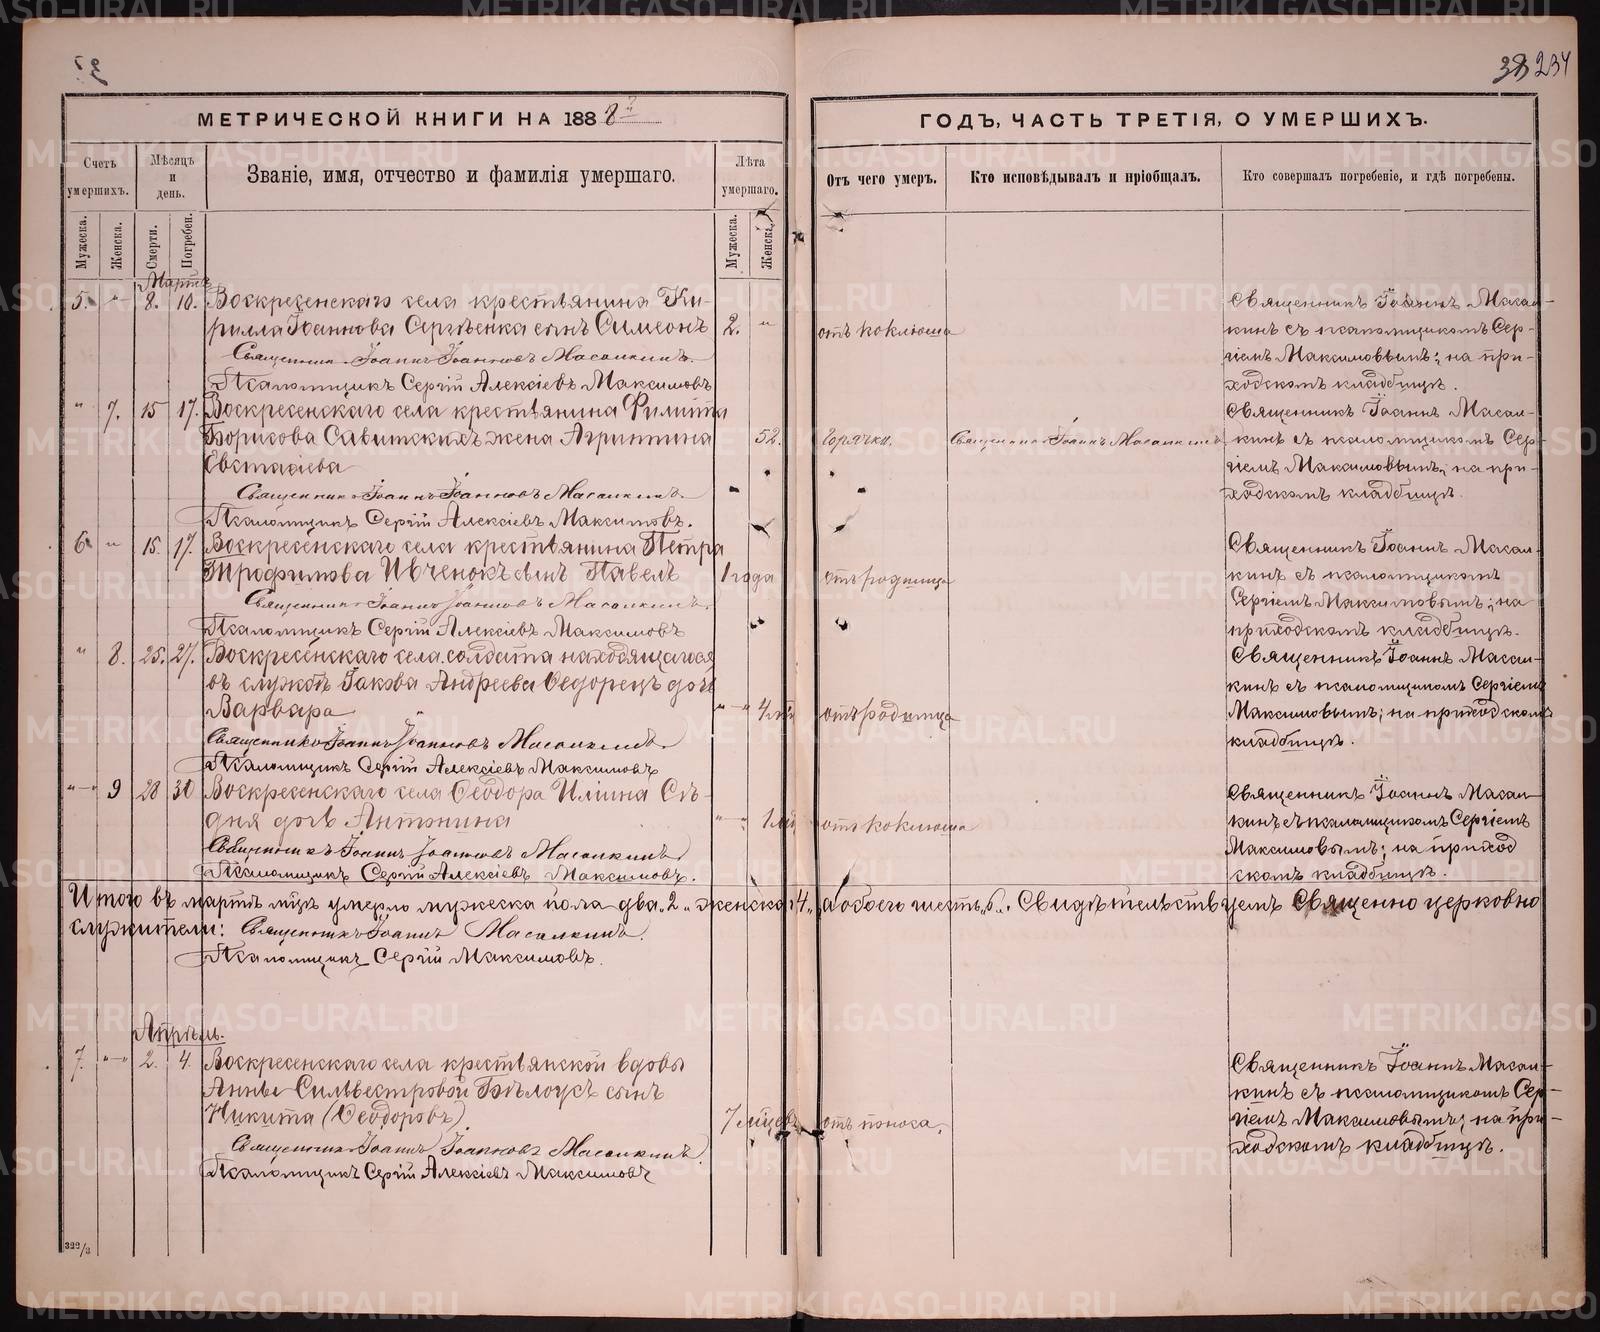 38 234
МЕТРИЧЕСКОЙ КНИГИ НА 1888
ГОДЪ, ЧАСТЬ ТРЕТІЯ, О УМЕРШИХЪ.
Счетъ умершихъ.
Мѣсяцъ и день.
Званіе, имя, отчество и фамилія умершаго.
Лѣта умершаго.
Отъ чего умеръ.
Кто исповѣдывалъ и пріобщалъ.
Кто совершалъ погребеніе, и гдѣ погребены.
Мужеска.
Женска.
Смерти.
Погребен.
Мужеска.
Женска.
Мартъ
5. „ 8. 10. Воскресенскаго села крестьянина Ки-
рилла Іоаннова Сергѣенка сынъ Симеонъ 2. „ отъ коклюша
Священникъ Іоаннъ Іоанновъ Масалкинъ.
Псаломщикъ Сергій Алексіевъ Максимовъ
Священникъ Іоаннъ Масал-
кинъ съ псаломщикомъ Сер-
гіемъ Максимовымъ; на при-
ходскомъ кладбищѣ.
„ 7. 15 17. Воскресенскаго села крестьянина Филиппа
Борисова Савитскихъ жена Агриппина 52. Горячки. Священникъ Іоаннъ Масалкинъ
Евстафіева
Священникъ Іоаннъ Іоанновъ Масалкинъ.
Псаломщикъ Сергій Алексіевъ Максимовъ.
Священникъ Іоаннъ Масал-
кинъ съ псаломщикомъ Сер-
гіемъ Максимовымъ; на при-
ходскомъ кладбищѣ.
6. „ 15. 17. Воскресенскаго села крестьянина Петра
Трофимова Ивченокъ сынъ Павелъ 1 года отъ родимца
Священникъ Іоаннъ Іоанновъ Масалкинъ.
Псаломщикъ Сергій Алексіевъ Максимовъ
Священникъ Іоаннъ Масал-
кинъ съ псаломщикомъ
Сергіемъ Максимовымъ; на
приходскомъ кладбищѣ.
„ 8. 25. 27. Воскресенскаго села солдата находящагося
въ службѣ Іакова Андреева Федорецъ дочь
Варвара „ 4 отъ родимца
Священникъ Іоаннъ Іоанновъ Масалкинъ.
Псаломщикъ Сергій Алексіевъ Максимовъ
Священникъ Іоаннъ Масал-
кинъ съ псаломщикомъ Сергіемъ
Максимовымъ; на приходскомъ
кладбищѣ.
„ 9 28 30 Воскресенскаго села Ѳеодора Иліина Сѣ-
дня дочь Антонина „ 1 отъ коклюша
Священникъ Іоаннъ Іоанновъ Масалкинъ
Псаломщикъ Сергій Алексіевъ Максимовъ.
Священникъ Іоаннъ Масал-
кинъ съ псаломщикомъ Сергіемъ
Максимовымъ; на приход
скомъ кладбищѣ.
Итого въ мартѣ мцѣ умерло мужеска пола два „2„ женска „4„ обоего шесть „6„. Свидѣтельствуемъ Священно церковно
служители: Священникъ Іоаннъ Масалкинъ.
Псаломщикъ Сергій Максимовъ.
Апрѣль.
7. „ 2. 4. Воскресенскаго села крестьянской вдовы
Анны Сильвестровой Бѣлоусъ сынъ
Никита (Ѳеодоровъ) 7 мцевъ отъ поноса.
Священникъ Іоаннъ Іоанновъ Масалкинъ.
Псаломщикъ Сергій Алексіевъ Максимовъ
Священникъ Іоаннъ Масал-
кинъ съ псаломщикомъ Сер-
гіемъ Максимовымъ; на при-
ходскомъ кладбищѣ.
322/3
METRIKI.GASO-URAL.RU